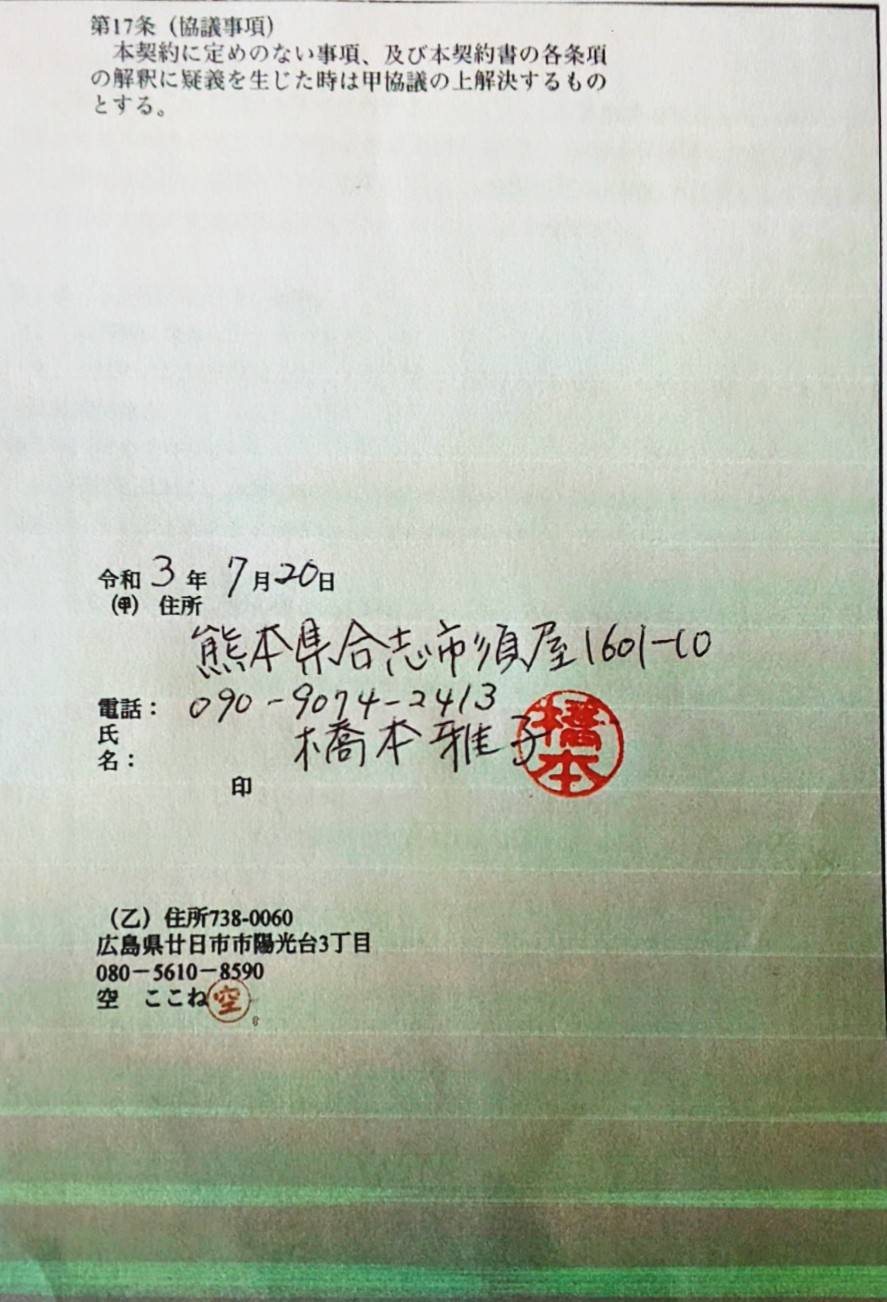 第17条（協議事項）
本契約に定めのない事項、及び本契約書の各条項
の解釈に疑義を生じた時は甲協議の上解決するもの
とする。
令和 3 年 7月20日
（甲） 住所
熊本県合志市須屋1601-10
電話： 090-9074-2413
氏
名： 橋本雅子 橋本
印
（乙）住所738-0060
広島県廿日市市陽光台3丁目
080－5610－8590
空 ここね 空